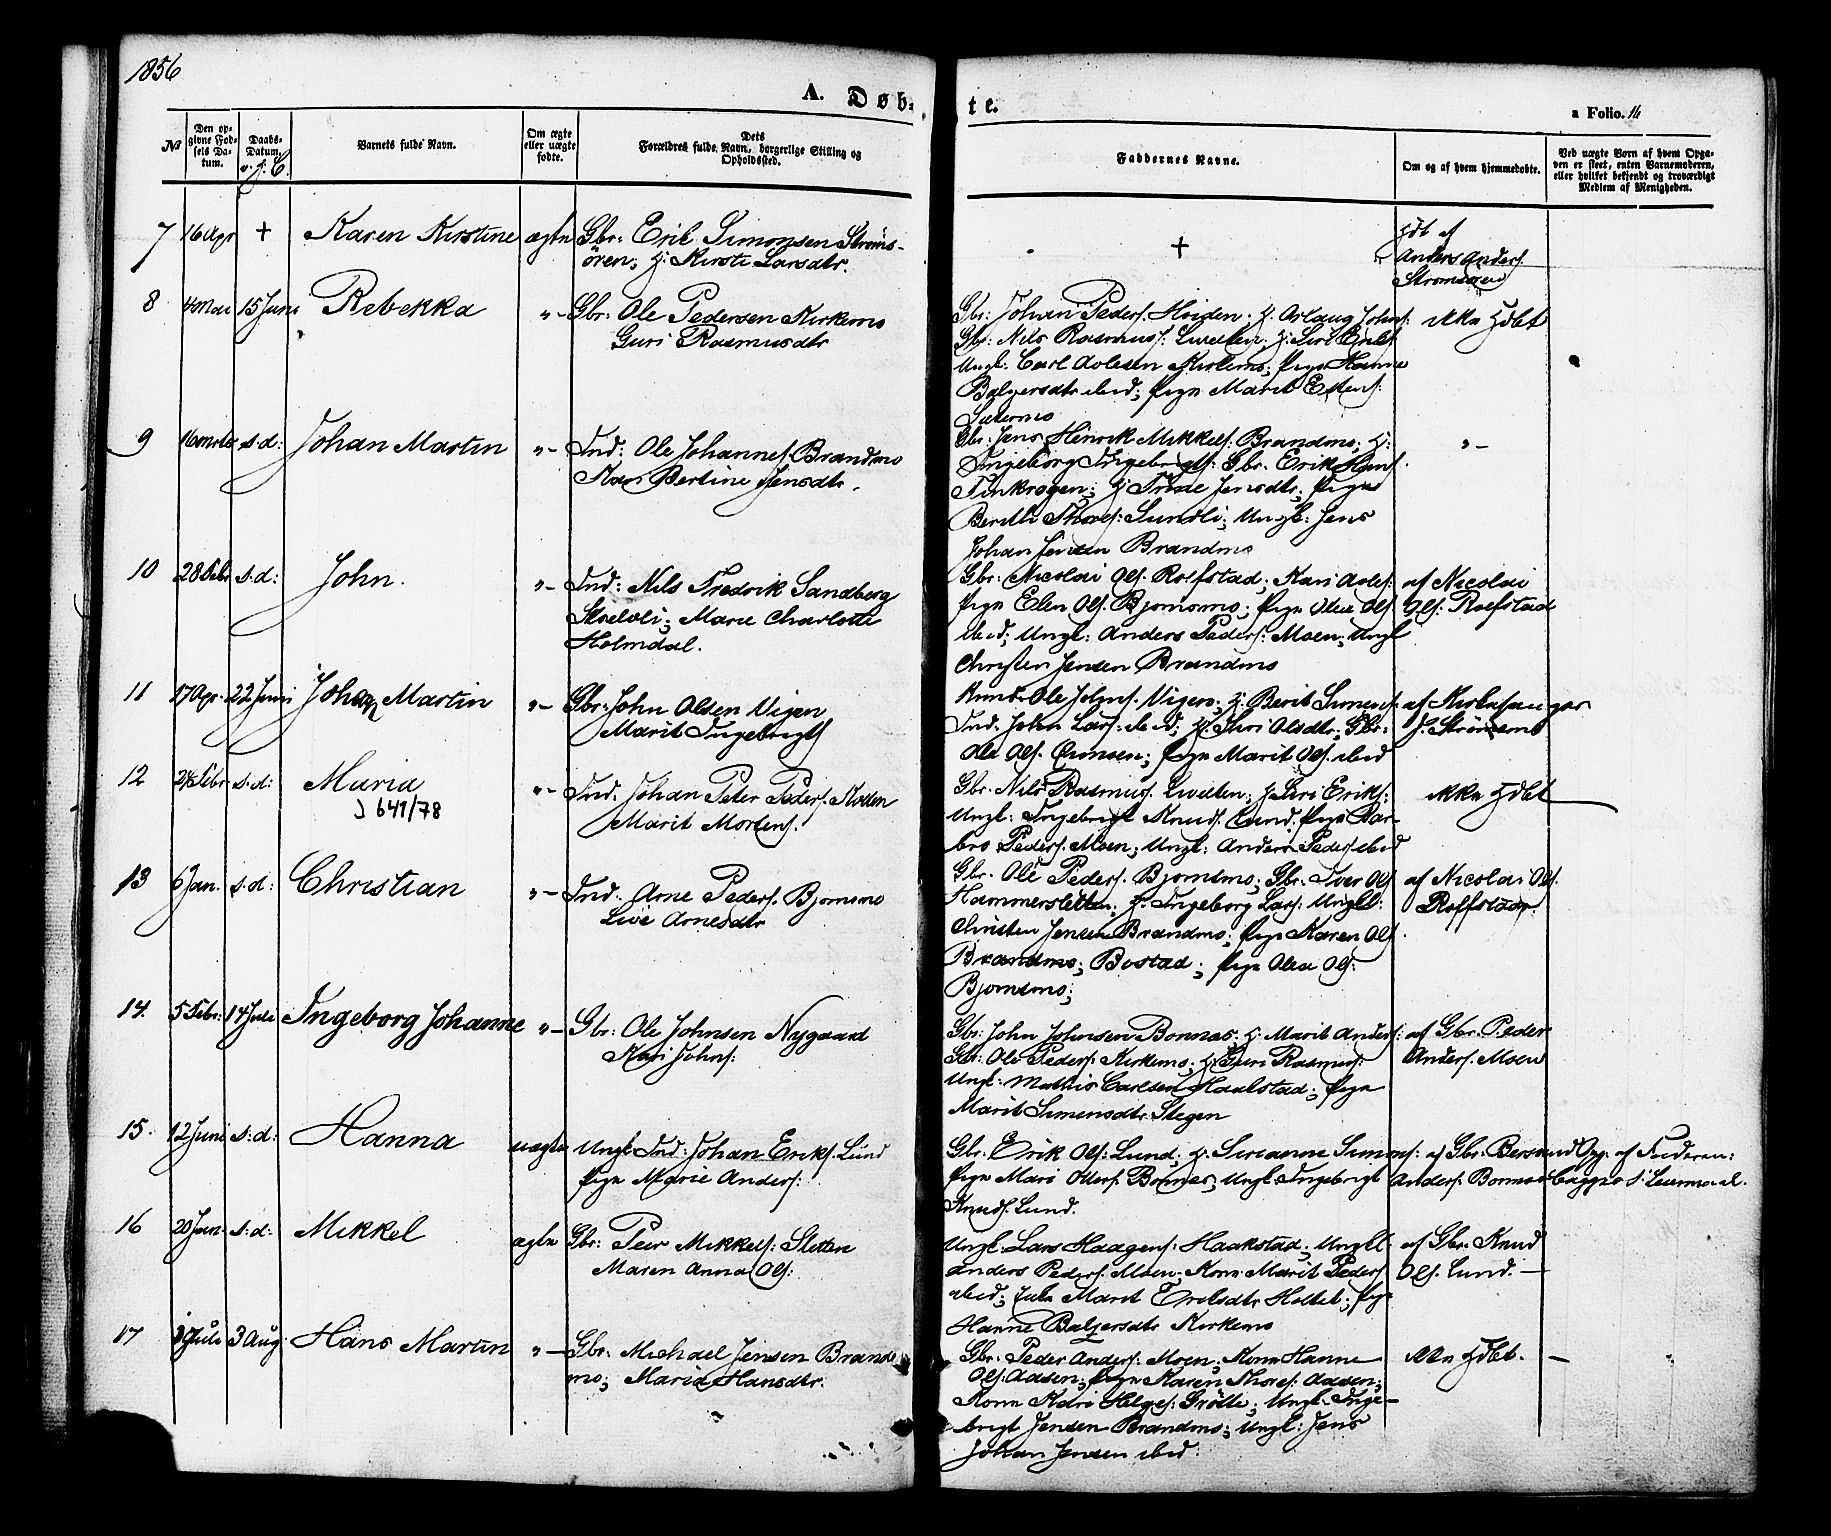 1856
A. Døb-
te.
a Folio. 16
№
Den op-
givne Fød-
sels Da-
tum.
Daabs-
Datum.
Varnets fulde Navn.
Om ægte
eller uægte
fødte.
Dets
Forældres fulde Navn, borgerlige Stilling og
Opholdssted.
Faddernes Navne.
Om og af hvem hjemmedøbte.
Ved uægte Børn af hvem Opga-
ven er skeet, enten Barnemoderen,
eller hvilket bekjendt og troværdigt
Medlem af Menigheden.
7 16 Apr + Karen Kirstine ægte Gbr: Erik Simonsen Strøms-
ören; H: Kirsti Larsdtr.
+
hdbt af
Anders Anders.
Strømsøren
8 4 Mai 15 Juni Rebekka "- Gbr: Ole Pedersen Kirkemo
Guri Rasmusdtr
Gbr: Johan Peders. Hoiden. H: Arlaug Johns:
Gbr: Nils Rasmus: H: Siri Eriks
Ungk: Carl Kirkemo; Pige Hanne
Balzersdtr ibid; Pige Marit Estens:
ikke hdbt
9 16 s.d: Johan Martin "- Ind: Ole Johannes. Brandmo
Bertine Jensdtr.
Gbr: Jens Henrik Mikkels. Brandmo; H:
Ingeborg Ingebrigts: Gbr. Erik Hans.
Finkrogen; H: Jensdtr; Pige
Berethe Thores: Sundli; Ungk: Jens
Johan Jensen Brandmo
"-
10 28 Febr s.d: John. "- Ind: Nils Fredrik Sandberg
Marie Charlotte
Holmdal.
Gbr: Nicolai Ols. Rolfstad; Kari
Pige Elen Ols. Bjornsmo; Pige Olea Ols
ibid; Ungk: Anders Peders: Moen; Ungk
Christen Jensen Brandmo
af Nicolai
Ols: Rolfstad
11 17 Apr. 22 Juni Johan Martin "- Gbr: John Olsen Vigen
Marit Ingebrigts
Ole Johns. Vigen; H: Berit Simens:
Ind: John Lars: ibid; H: Olsdtr; Gbr:
Ole Ols. Pige Marit Ols. ibid
af Kirkesanger
J. Strømsmo
12 Febr s.d: Maria "- Ind: Johan Peter Peders. Moen
J 641/78
Marit Mortens.
Gbr. Nils Rasmus. H: Siri Eriks:
Ungk: Ingebrigt Knuds. Lund. Pige Bar-
bro Peders. Moen; Ungk: Anders Peders ibid
ikke hdbt
13 6 Jan. s.d: Christian "- Ind: Arne Peders. Bjornsmo
Live Arnesdtr
Gbr. Ole Peders. Bjornsmo; Gbr: Iver Ols
Hammersletten; H: Ingeborg Lars: Ungk:
Christen Jensen Brandmo; Pige Karen Ols
Brandmo; Bostad; Pige Olea Ols:
Bjornsmo;
af Nicolai Ols.
Rolfstad.
14. 5 Febr: 14 Juli Ingeborg Johanne "- Gbr: Ole Johnsen Nygaard
Kari Johns:
Gbr: John Johnsen Bonnes. H: Marit Anders:
Gbr: Ole Peders: Kirkemo; H: Guri Rasmus:
Ungk: Mathis Carlsen Haakstad; Pige
Marit Simensdtr Stegen
af Gbr. Peder
Anders. Moen
15. 12 Juni s.d: Hanna uægte Ungk: Ind: Johan Eriks. Lund
Pige Marie Anders:
Gbr. Erik Ols: Lund; H: Sirianne Simons:
Pige Mari Bonnes; Ungk: Ingebrigt
Knuds. Lund.
af Gbr: Bersvend
Anders. Bonnes
Opg. af Faderen:
Begges 1' Leiermaal.
16 20 Jan. s.d: Mikkel ægte Gbr: Peer Mikkels: Sletten
Maren Anna Ols:
Ungk: Lars Haagens: Haakstad; Ungk:
Anders Peders. Moen; Kone Marit Peders
ibid; Enke Marit Eriksdtr Holtet; Pige
Hanne Balzersdtr Kirkemo
af Gbr. Knud
Ols. Lund.—
17 Juli 3 Aug. Hans Martin "- Gbr: Michael Jensen Brand-
mo; Maria Hansdtr.
Gbr. Peder Anders. Moen; Kone Hanne
Ols. Aasen; Pige Karen Thores: Aasen;
Kone Kari Helges: Grötte; Ungk: Inge-
brigt Jensen Brandmo; Ungk: Jens
Johan Jensen ibid:
ikke hdbt. —